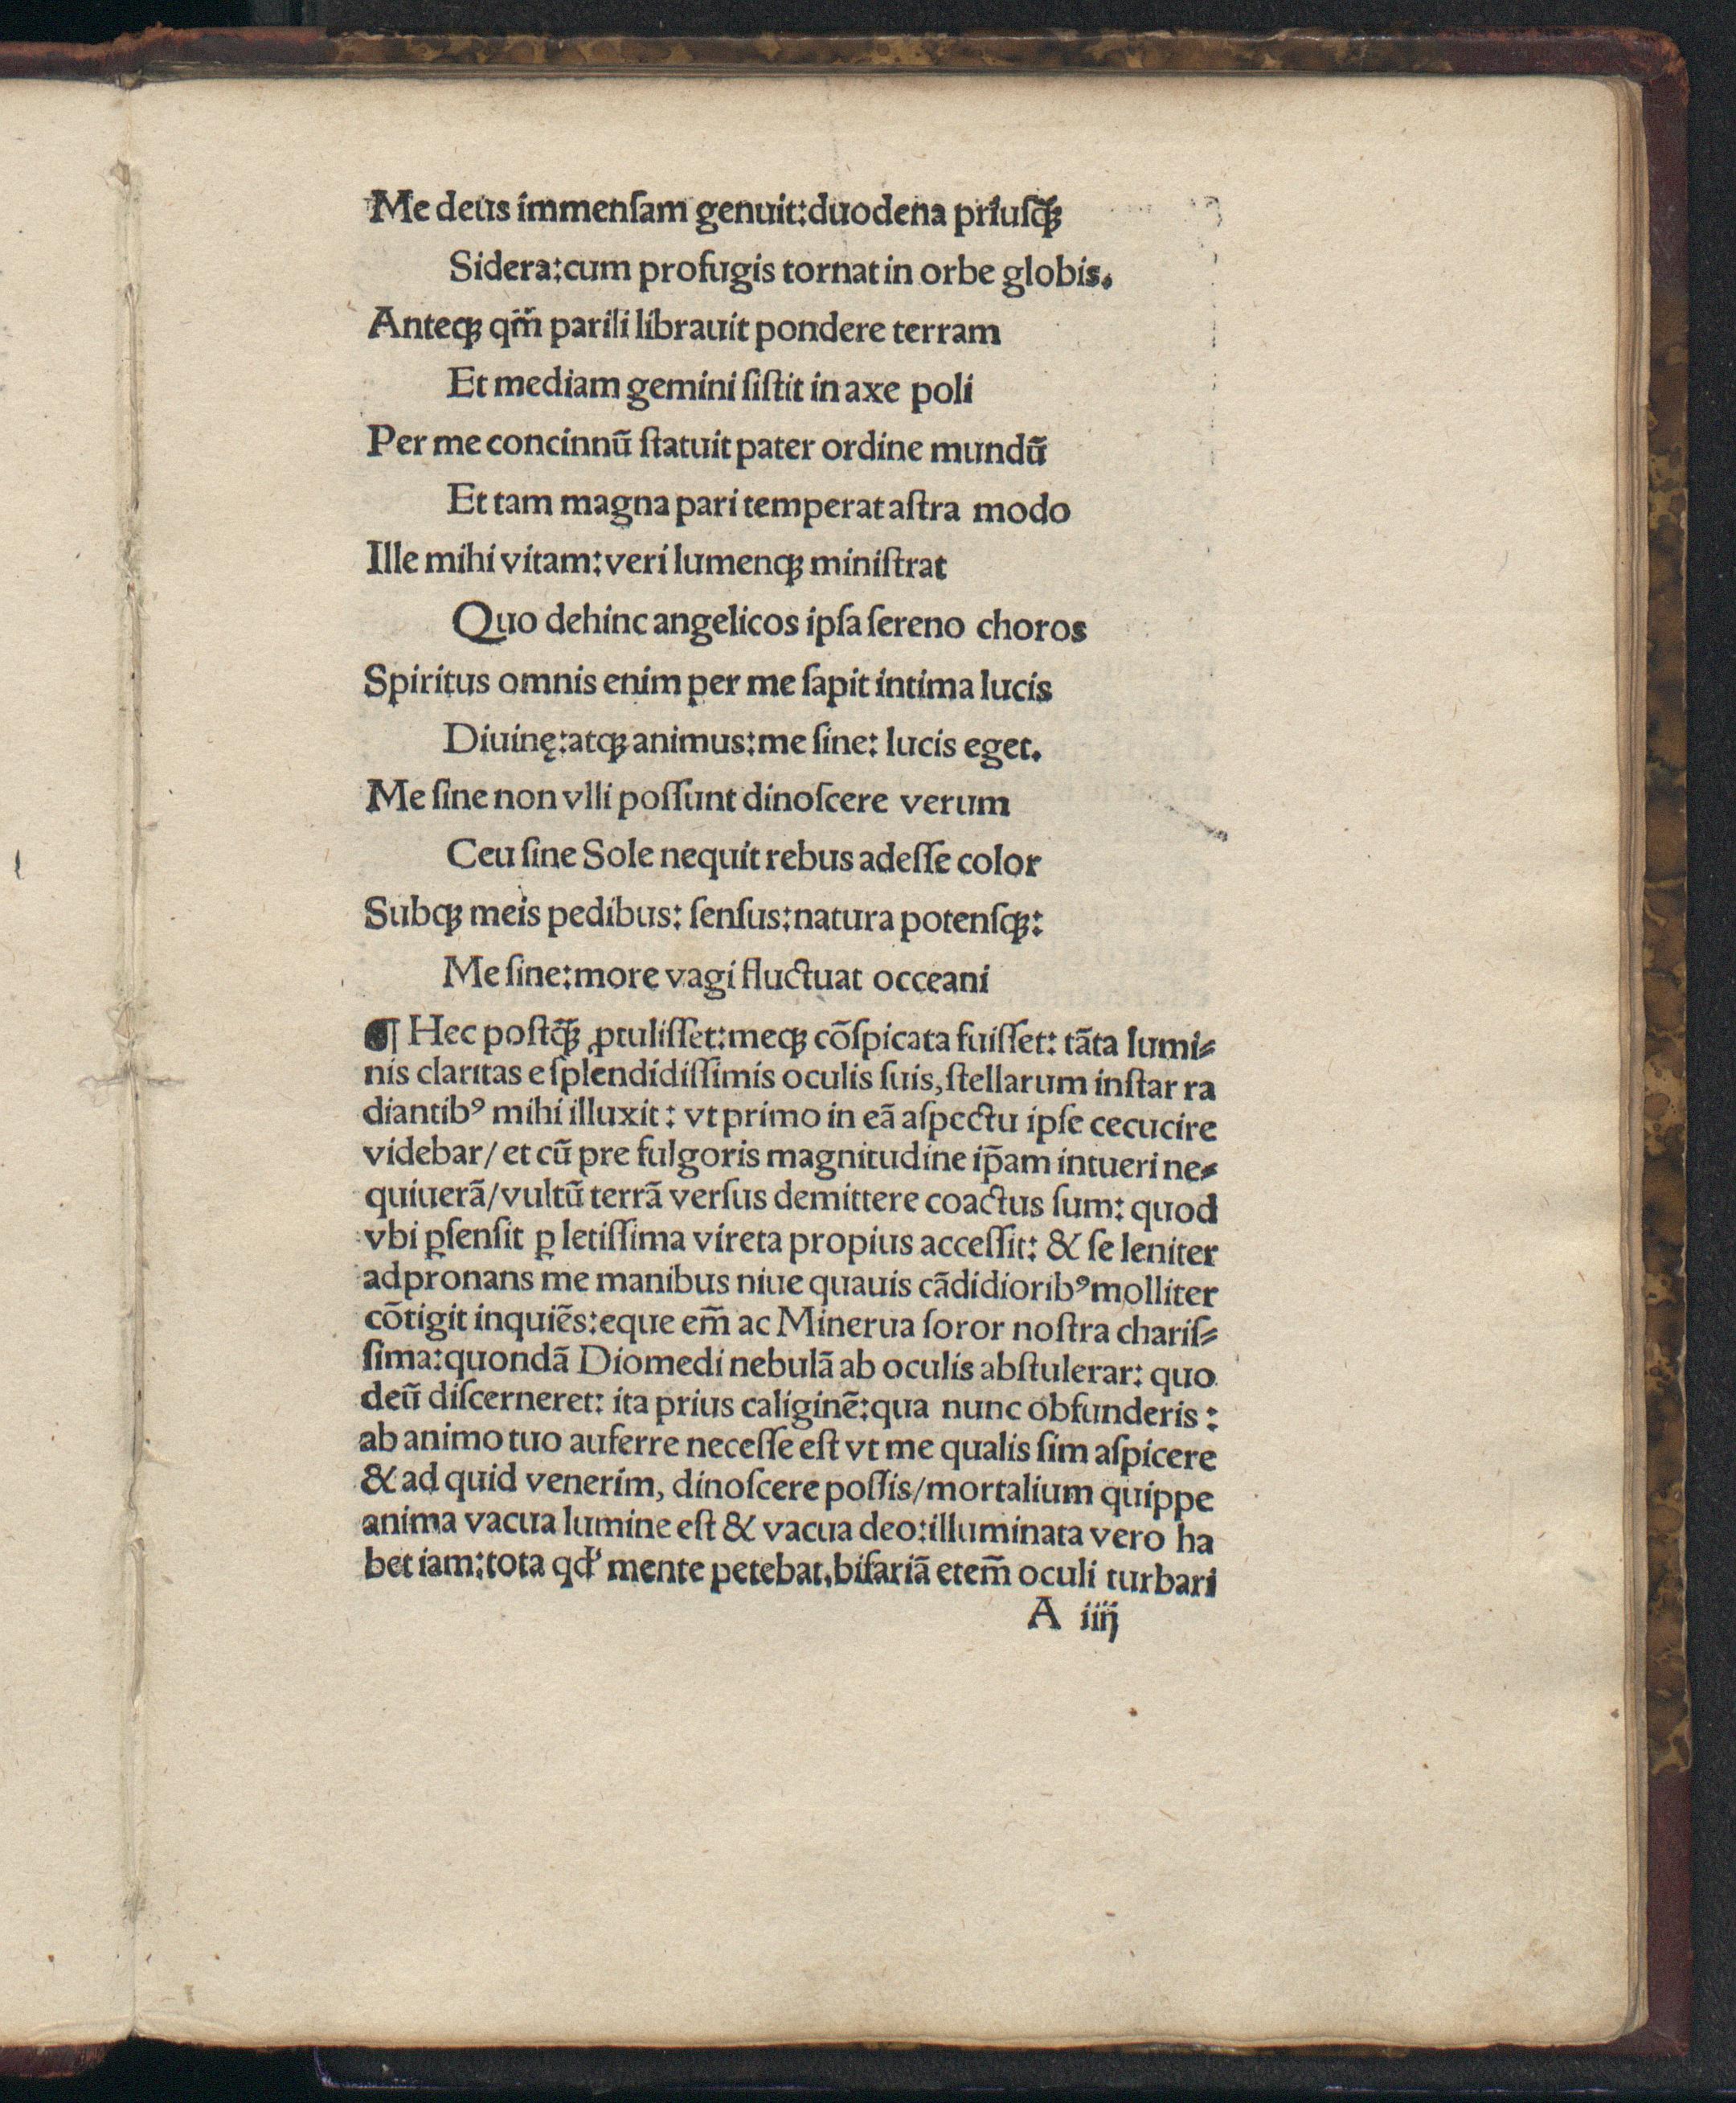 Me deus immenſam genuit:duodena priuſq̃ꝫ
Sidera:cum profugis tornat in orbe globis.
Anteqꝫ qm̃ parili librauit pondere terram
Et mediam gemini ſiſtit in axe poli
Per me concinnũ ſtatuit pater ordine mundũ
Et tam magna pari temperat aſtra modo
Ille mihi vitam:veri lumenqꝫ miniſtrat
Quo dehinc angelicos ipſa ſereno choros
Spiritus omnis enim per me ſapit intima lucis
Diuinę:atqꝫ animus:me ſine: lucis eget.
Me ſine non vlli poſſunt dinoſcere verum
Ceu ſine Sole nequit rebus adeſſe color
Subqꝫ meis pedibus: ſenſus:natura potenſqꝫ:
Me ſine:more vagi fluctuat occeani
¶ Hec poſtq̃ꝫ ꝓtuliſſet:meqꝫ cõſpicata fuiſſet: tãta lumi⸗
nis claritas e ſplendidiſſimis oculis ſuis,ſtellarum inſtar ra
diantibꝰ mihi illuxit: vt primo in eã aſpectu ipſe cecucire
videbar/ et cũ pre fulgoris magnitudine ip̃am intueri ne⸗
quiuerã/vultũ terrã verſus demittere coactus ſum: quod
vbi ꝑſenſit ꝑ letiſſima vireta propius acceſſit: & ſe leniter
adpronans me manibus niue quauis cãdidioribꝰ molliter
cõtigit inquiẽs:eque em̃ ac Minerua ſoror noſtra chariſ⸗
ſima:quondã Diomedi nebulã ab oculis abſtulerar: quo
deũ diſcerneret: ita prius caliginẽ:qua nunc obfunderis :
ab animo tuo auferre neceſſe eſt vt me qualis ſim aſpicere
& ad quid venerim, dinoſcere poſſis/mortalium quippe
anima vacua lumine eſt & vacua deo:illuminata vero ha
bet iam:tota qd' mente petebat.bifariã etem̃ oculi turbari
A iiij